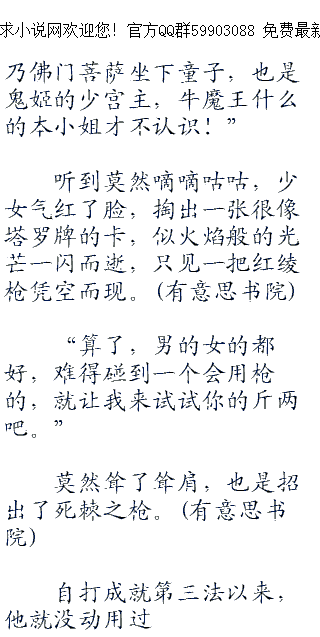 求小说网欢迎您！官方QQ群59903088 免费最新
乃佛门菩萨坐下童子，也是
鬼姬的少宫主，牛魔王什么
的本小姐才不认识！”
听到莫然嘀嘀咕咕，少
女气红了脸，掏出一张很像
塔罗牌的卡，似火焰般的光
芒一闪而逝，只见一把红绫
枪凭空而现。(有意思书院)
“算了，男的女的都
好，难得碰到一个会用枪
的，就让我来试试你的斤两
吧。”
莫然耸了耸肩，也是招
出了死棘之枪。(有意思书
院)
自打成就第三法以来，
他就没动用过